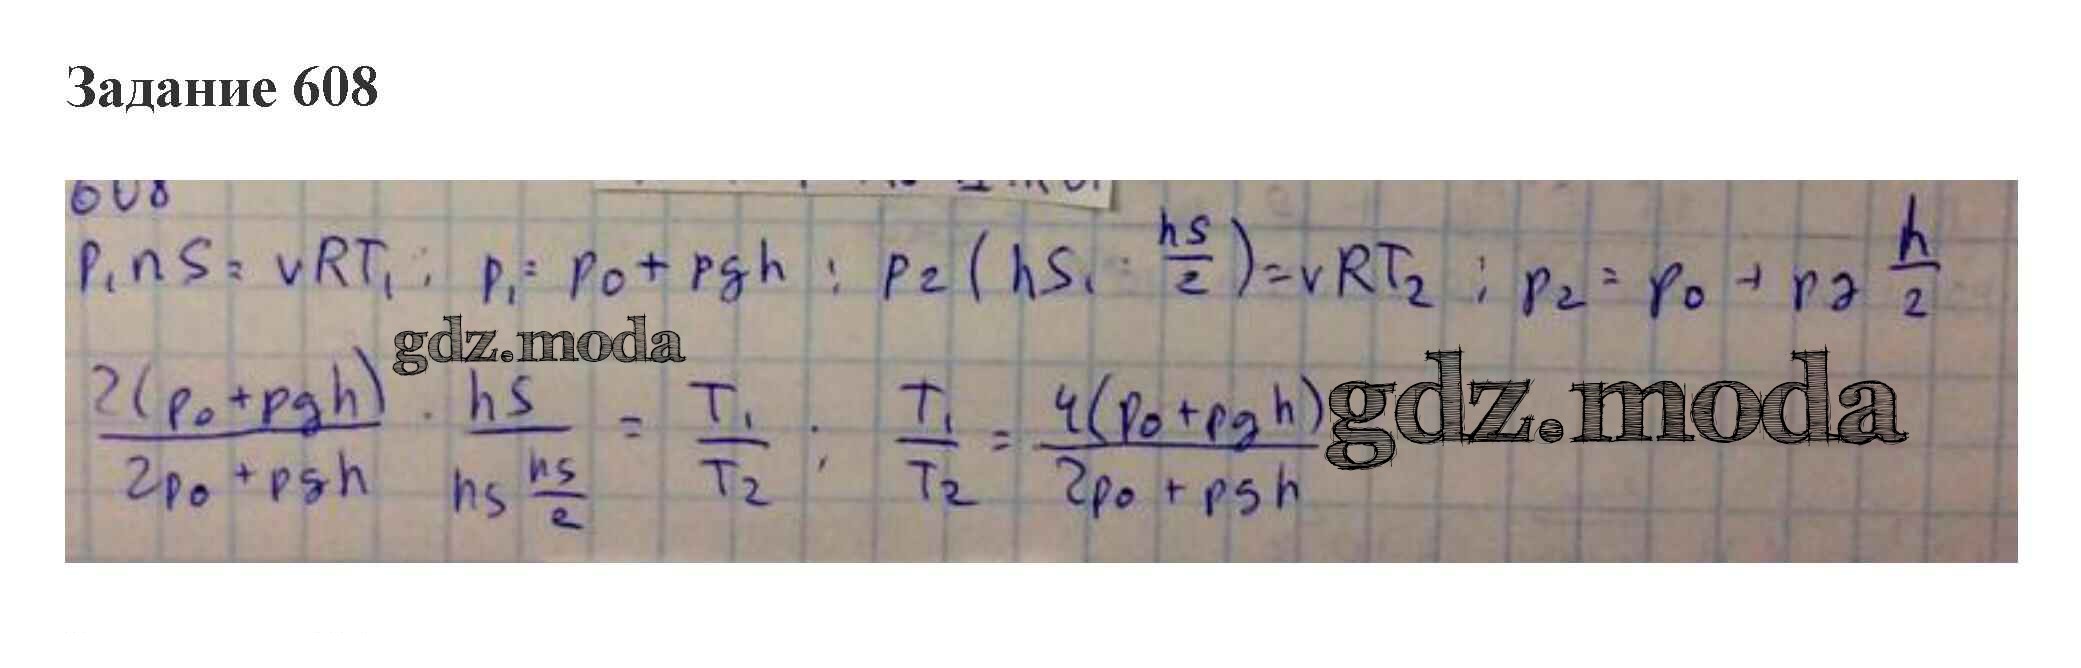 Задание 608
608
p₁hS = νRT₁; p₁ = p₀ + ρgh; p₂(hS₁ - hS/2) = νRT₂; p₂ = p₀ + ρg h/2
gdz.moda
2(p₀+ρgh)/(2p₀+ρgh) · hS/(hS hS/2) = T₁/T₂; T₁/T₂ = 4(p₀+ρgh)/(2p₀+ρgh)
gdz.moda